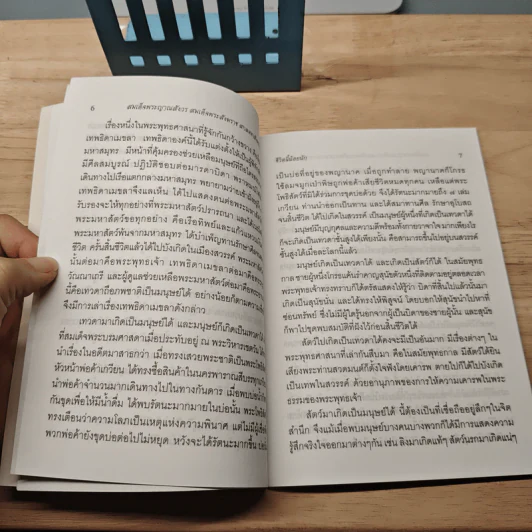 6 สมเด็จพระญาณสังวร สมเด็จพระสังฆราช
เรื่องหนึ่งในพระพุทธศาสนาที่รู้จักกันกว้างขวาง
เทพธิดาเมขลา เทพธิดาองค์นี้ได้รับแต่งตั้งให้เป็น
มหาสมุทร มีหน้าที่คุ้มครองช่วยเหลือมนุษย์ที่ถือ
มีศีลสมบูรณ์ ปฏิบัติชอบต่อมารดาบิดา พระมหา
เดินทางไปเรือแตกกลางมหาสมุทร พยายามว่ายเข้าฝั่ง
เทพธิดาเมขลาจึงแลเห็น ได้ไปแสดงตนต่อพระมหา
รับรองจะให้ทุกอย่างที่พระมหาสัตว์ปรารถนา และได้
พระมหาสัตว์ขอทุกอย่าง คือเรือทิพย์และแก้วแหวน
พระมหาสัตว์พ้นจากมหาสมุทร ได้บำเพ็ญทานรักษาศีล
จนสิ้นชีวิต ครั้นสิ้นชีวิตแล้วได้ไปบังเกิดในเมืองสวรรค์ พระมหา
นั้นต่อมาคือพระพุทธเจ้า เทพธิดาเมขลาต่อมาคือพระ
วัณณาเถรี และผู้ดูแลช่วยเหลือพระมหาสัตว์ต่อมาคือพระ
นี้คือเทวดาถึงภพชาติเป็นมนุษย์ได้ อย่างน้อยก็ตามความ
จึงมีการเล่าเรื่องเทพธิดาเมขลาดังกล่าว
เทวดามาเกิดเป็นมนุษย์ได้ และมนุษย์ก็เกิดเป็นเทวดาได้
ที่สมเด็จพระบรมศาสดาเมื่อประทับอยู่ ณ พระวิหารเชตวัน ได้
นำเรื่องในอดีตมาสาธกว่า เมื่อทรงเสวยพระชาติเป็นพระโพธิสัตว์
หัวหน้าพ่อค้าเกวียน ได้ทรงซื้อสินค้าในนครพาราณสีบรรทุก
นำพ่อค้าจำนวนมากเดินทางไปในทางกันดาร เมื่อพบบ่อน้ำ
กันขุดเพื่อให้มีน้ำดื่ม ได้พบรัตนะมากมายในบ่อนั้น พระโพธิสัตว์
ทรงเตือนว่าความโลภเป็นเหตุแห่งความพินาศ แต่ไม่มีผู้เชื่อ
พวกพ่อค้ายังขุดบ่อต่อไปไม่หยุด หวังจะได้รัตนะมากขึ้น บ่อ
ชีวิตนี้น้อยนัก 7
เป็นบ่อที่อยู่ของพญานาค เมื่อถูกทำลาย พญานาคก็โกรธ
ใช้ลมจมูกเป่าพิษถูกพ่อค้าเสียชีวิตหมดทุกคน เหลือแต่พระ
โพธิสัตว์ที่มิได้ร่วมการขุดบ่อด้วย จึงได้รัตนะมากมายถึง ๗ เล่ม
เกวียน ท่านนำออกเป็นทาน และได้สมาทานศีล รักษาอุโบสถ
จนสิ้นชีวิต ได้ไปเกิดในสวรรค์ เป็นมนุษย์ผู้หนึ่งที่เกิดเป็นเทวดาได้
มนุษย์มีบุญกุศลและความดีพร้อมทั้งกายวาจาใจมากเพียงไร
ก็จะเกิดเป็นเทวดาชั้นสูงได้เพียงนั้น คือสามารถขึ้นไปอยู่บนสวรรค์
ชั้นสูงได้เมื่อละโลกนี้แล้ว
มนุษย์เกิดเป็นเทวดาได้ และเกิดเป็นสัตว์ก็ได้ ในสมัยพุทธ
กาล ชายผู้หนึ่งโกรธแค้นรำคาญสุนัขตัวหนึ่งที่ติดตามอยู่ตลอดเวลา
พระพุทธเจ้าทรงทราบก็ได้ตรัสแสดงให้รู้ว่า บิดาที่สิ้นไปแล้วนั้นมา
เกิดเป็นสุนัขนั้น และได้ทรงให้พิสูจน์ โดยบอกให้สุนัขนำไปหาที่
ซ่อนทรัพย์ ซึ่งไม่มีผู้ใดรู้นอกจากผู้เป็นบิดาของชายผู้นั้น และสุนัข
ก็พาไปขุดพบสมบัติที่ฝังไว้ก่อนสิ้นชีวิตได้
สัตว์ไปเกิดเป็นเทวดาได้คงจะเป็นอันมาก มีเรื่องต่างๆ ใน
พระพุทธศาสนาที่เล่ากันสืบมา คือในสมัยพุทธกาล มีสัตว์ได้ยิน
เสียงพระท่านสวดมนต์ก็ตั้งใจฟังโดยเคารพ ตายไปก็ได้ไปบังเกิด
เป็นเทพในสวรรค์ ด้วยอานุภาพของการให้ความเคารพในพระ
ธรรมของพระพุทธเจ้า
สัตว์มาเกิดเป็นมนุษย์ได้ นี้ต้องเป็นที่เชื่อถืออยู่ลึกๆในจิต
สำนึก จึงแม้เมื่อพบมนุษย์บางคนบางพวกก็ได้มีการแสดงความ
รู้สึกจริงใจออกมาต่างๆกัน เช่น ลิงมาเกิดแท้ๆ สัตว์นรกมาเกิดแน่ๆ